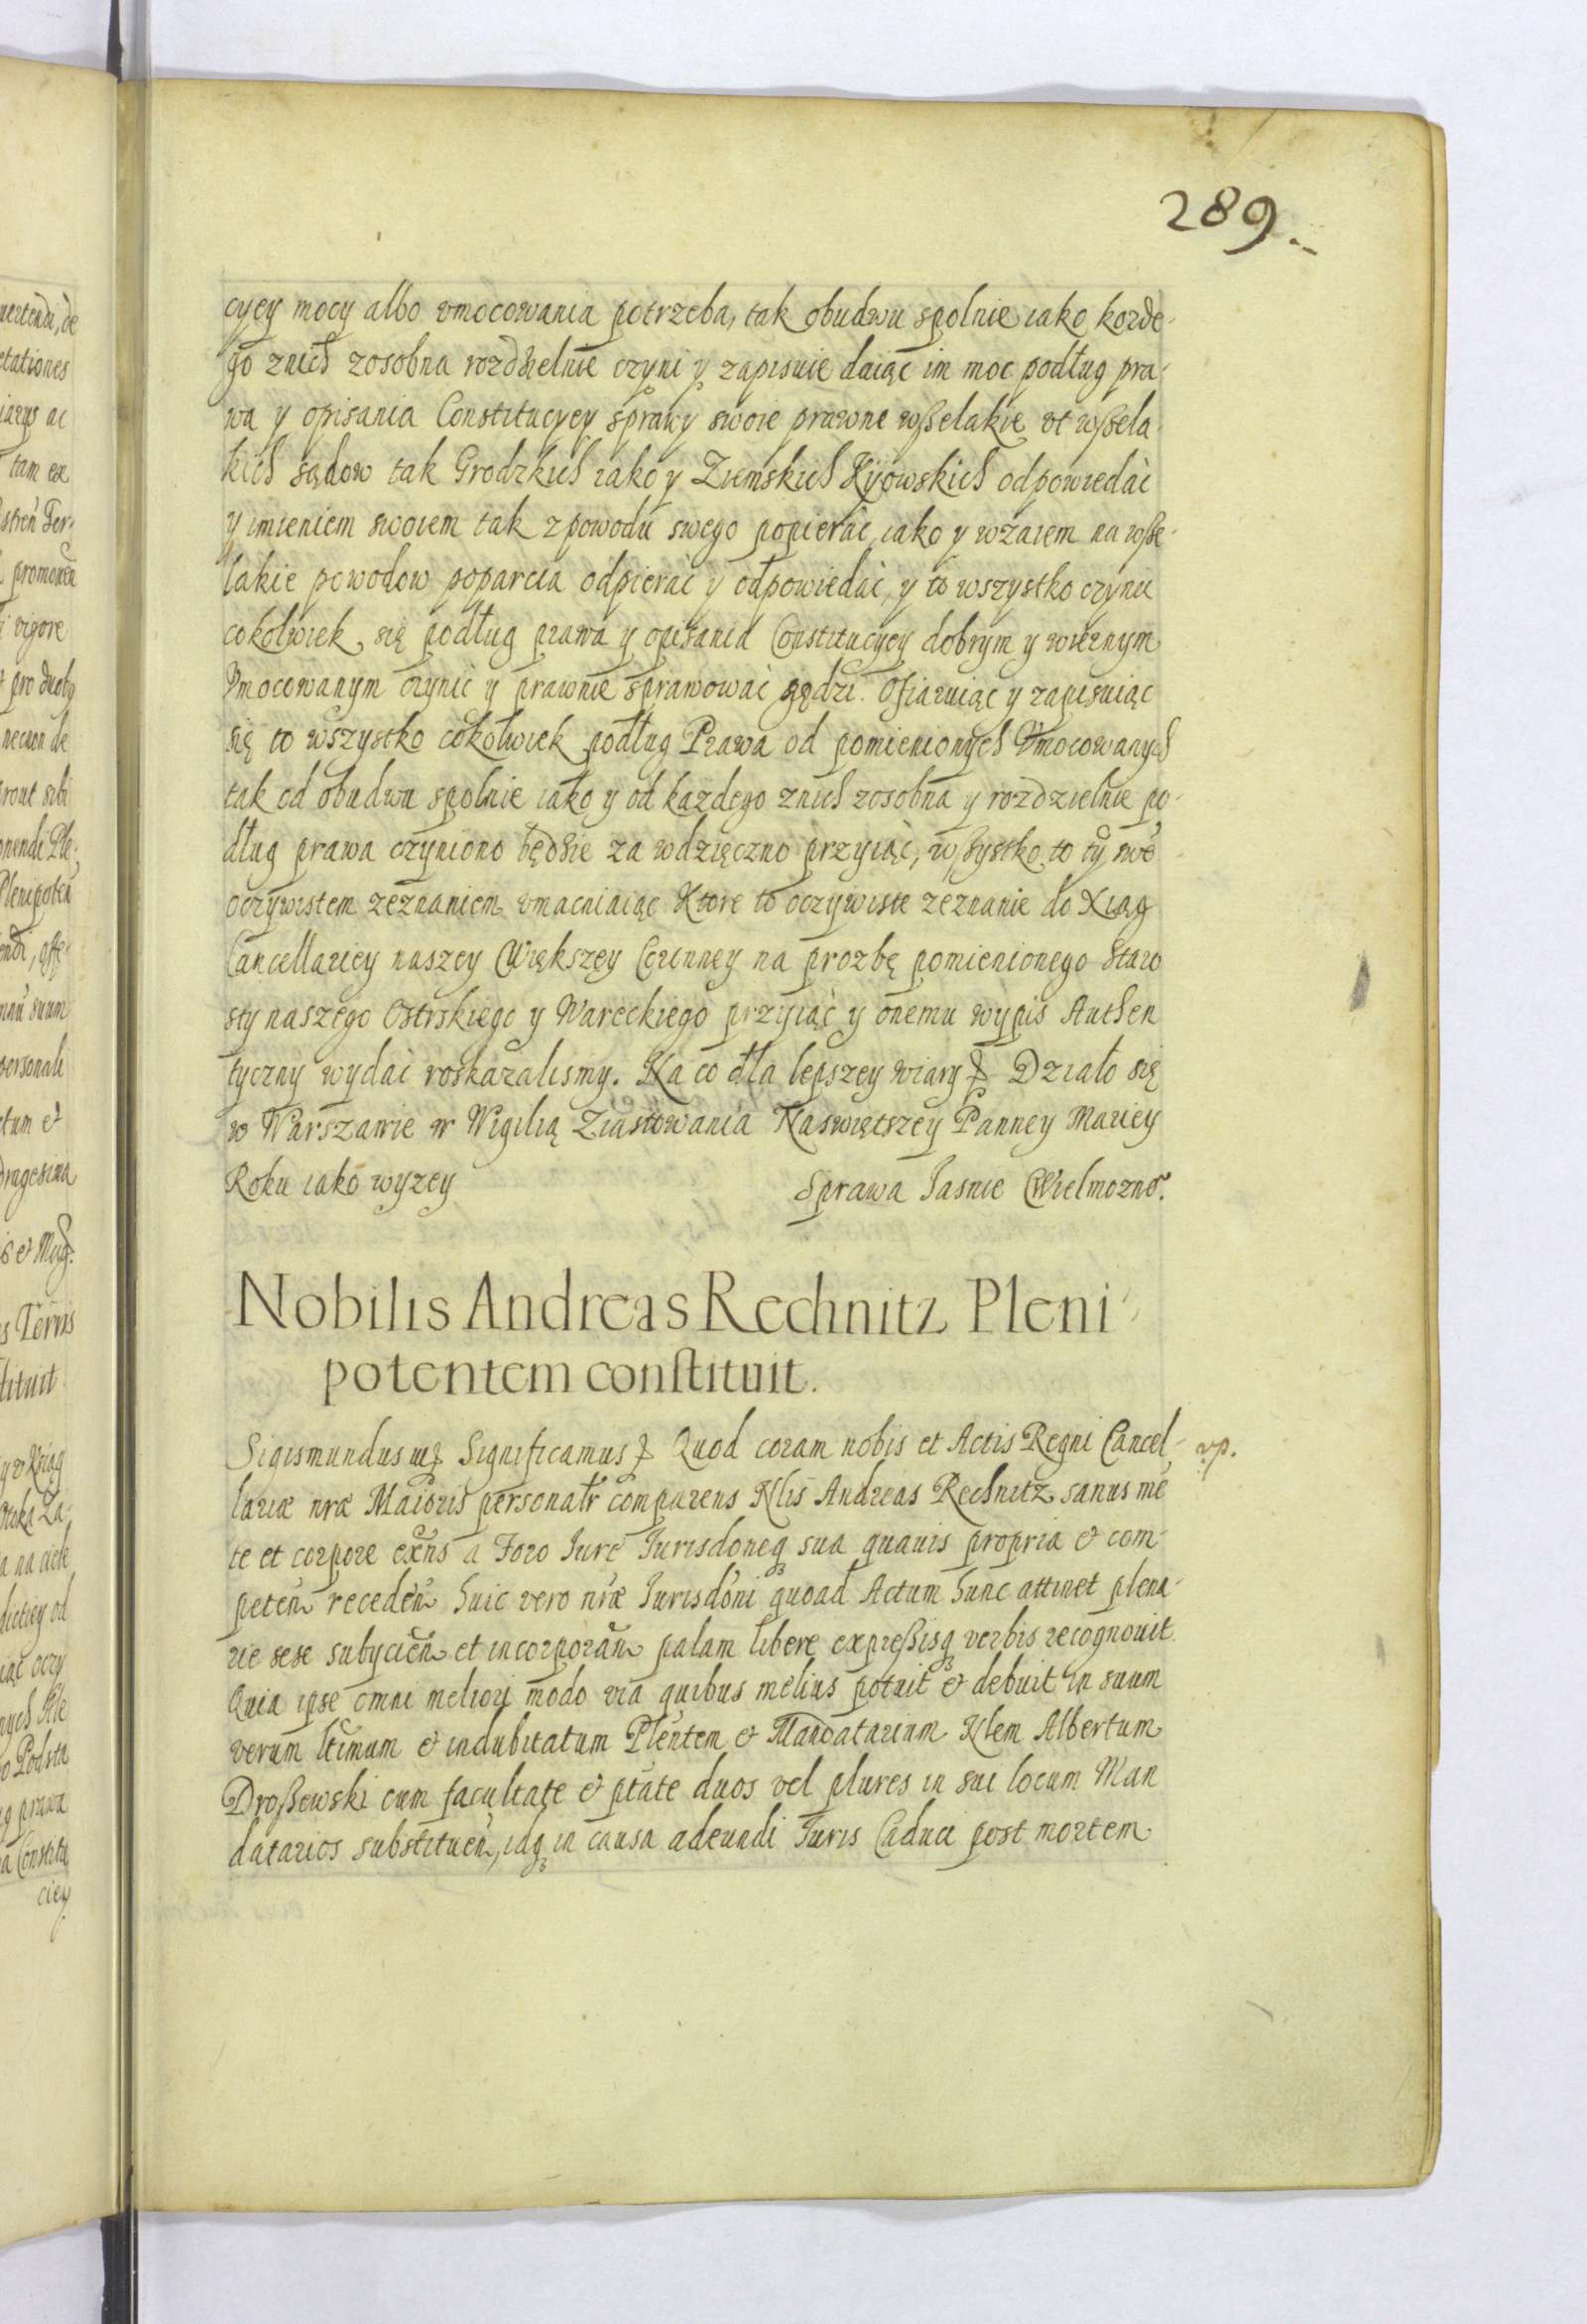 289.
cyey mocy albo vmocowania potrzeba, tak obudwu spolnie iako kożde-
go znich zosobna rozdzielnie czyni y zapisuie daiąc im moc podług pra-
wa y opisania Constitucyey sprawy swoie prawne wßelakie vt wßela
kich sądow tak Grodzkich iako y Ziemskich Kyowskich odpowiedać
y imieniem swoiem tak z powodu swego popierać iako y wzaiem na wße-
lakie powodow poparcia odpierać y odpowiedać, y to wszystko czynić
cokolwiek się podług prawa y opisania Constitucyey dobrym y wiernym
Vmocowanym czynić y prawnie sprawować sądzi. Ofiaruiąc y zapisuiąc
się to wszystko cokolwiek podług Prawa od pomienionych Vmocowanych
tak od obudwu spolnie iako y od kazdego znich zosobna y rozdzielnie po-
dług prawa czyniono będzie za wdzięczno przyiąć, wßystko to tÿ swē
oczywistem zeznaniem vmacniaiąc Ktore to oczywiste zeznanie do Xiąg
Cancellariey naszey Większey Corunney na prozbę pomienionego Staro
sty naszego Ostrskiego y Wareckiego przyiąć y onemu wypis Authen
tyczny wydać roskazalismy. Na co dla lepszey wiary ꝛ Działo się
w Warszawie w Wigilią Zwiastowania Naswiętszey Panney Mariey
Roku iako wyzey Sprawa Jasnie Wielmozneo.
Nobilis Andreas Rechnitz Pleni
potentem constituit.
Sigismundus ꝛ Significamus ꝛ Quod coram nobis et Actis Regni Cancel-
rp.
lariæ nræ Maioris personalr comparens Nlis Andreas Rechnitz sanus mē
te et corpore exēns a Foro Iure Iurisdōneq sua quauis propria & com-
peteñ recedeñ huic vero nræ Iurisdōni quoad Actum hunc attinet plena-
rie sese subycieñ et incorporañ palam libere expreßisq verbis recognouit
Quia ipse omni meliori modo via quibus melius potuit & debuit in suum
verum ltimum & indubitatum Plentem & Mandatarium Nlem Albertum
Droßewski cum facultate & ptate duos vel plures in sui locum Man
datarios substitueñ, idq in causa adeundi Iuris Caduci post mortem